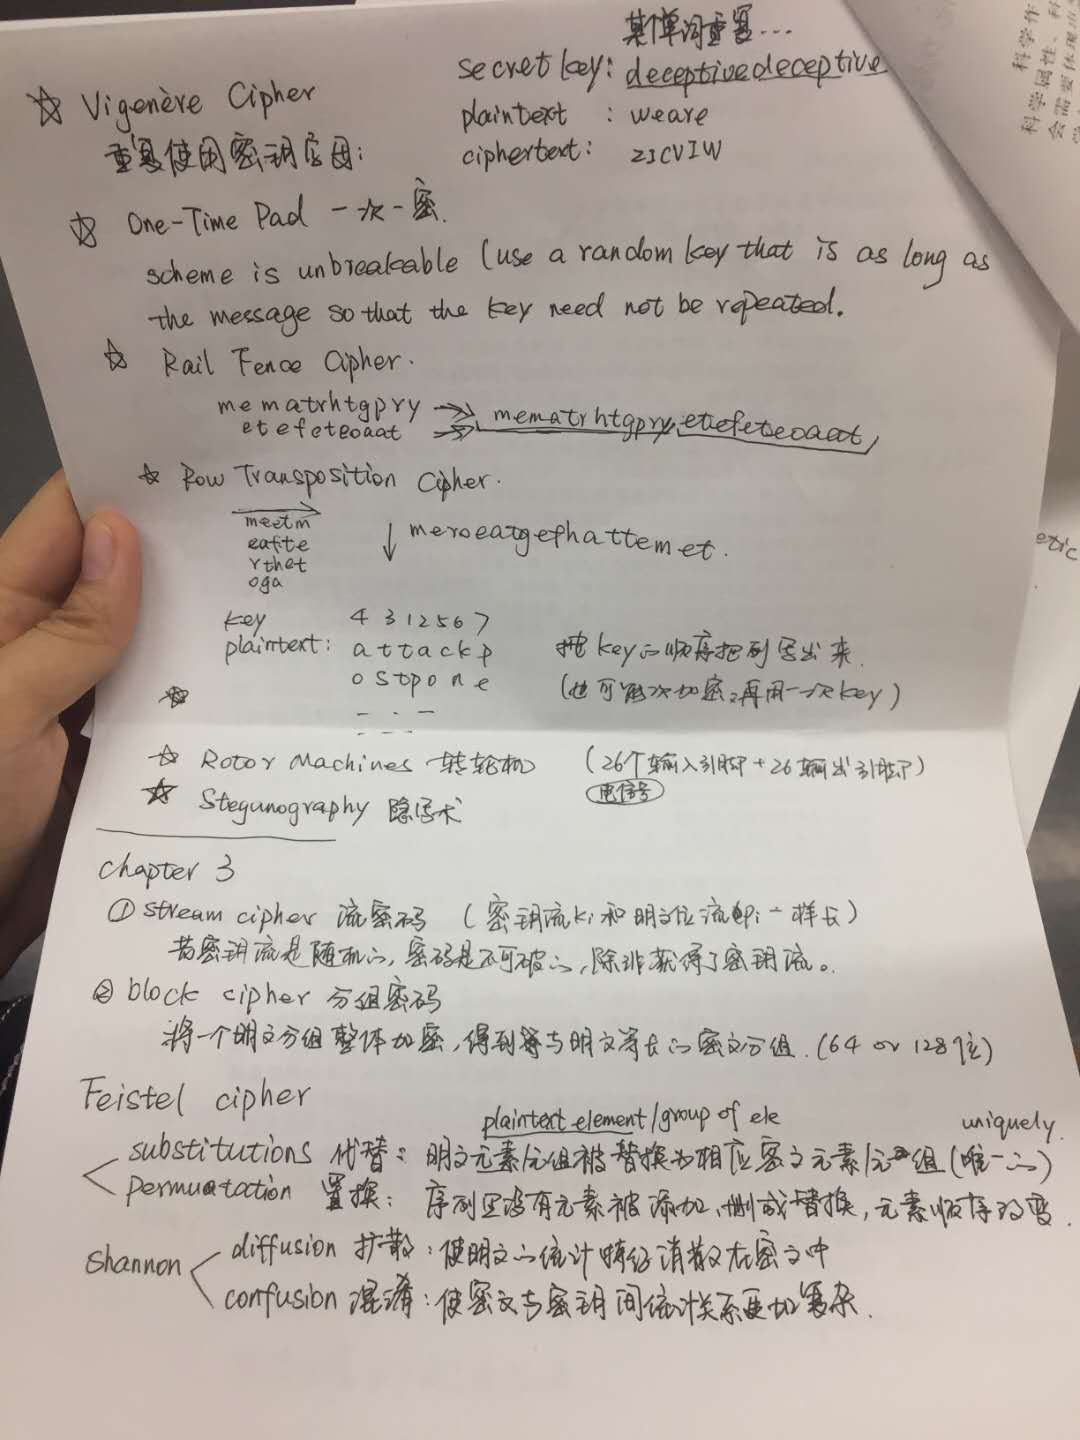 某个单词重复...
secret key: deceptivedeceptive
☆ Vigenère Cipher
plaintext : weare
重复使用密钥字母:
ciphertext: ZICVIW
☆ One-Time Pad 一次一密.
scheme is unbreakable (use a random key that is as long as
the message so that the key need not be repeated.
☆ Rail Fence Cipher.
mematrhtgpry
etefeteoaat
mematrhtgpry,etefeteoaat,
☆ Row Transposition Cipher.
meetm
eafte
rthet
oga
↓ meroeatgefhattemet.
key 4 3 1 2 5 6 7
plaintext: a t t a c k p
o s t p o n e
按key的顺序把列写出来.
(也可能次加密,再用一次key)
☆
☆ Rotor Machines 转轮机 (26个输入引脚+26输出引脚)
电信号
☆ Stegunography 隐写术
Chapter 3
① stream cipher 流密码 (密钥流ki和明文位流pi一样长)
若密钥流是随机的,密码是不可破的,除非获得了密钥流。
② block cipher 分组密码
将一个明文分组整体加密,得到等与明文等长的密文分组.(64 or 128位)
Feistel cipher
plaintext element/group of ele
uniquely.
substitutions 代替: 明文元素/元组被替换为相应密文元素/元组(唯一的)
permutation 置换: 序列里没有元素被添加、删或替换,元素顺序改变.
Shannon
diffusion 扩散: 使明文的统计特征消散在密文中
confusion 混淆: 使密文与密钥间统计关系更加复杂.
科学作
科学属性、科
会需要体现出
etic